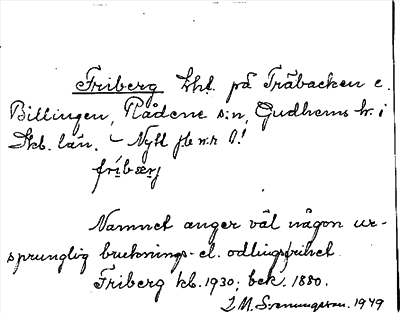 Friberg lht. på Träbacken e.
Billingen, Rådene s:n, Gudhems hr. i
Skb. län. – Nytt jb nr 0!
fri̍bærj
Namnet anger väl någon ur-
sprunglig bruknings- el. odlingsfrihet.
Friberg kb. 1930; bek. 1880.
I. M. Svenungsson. 1949